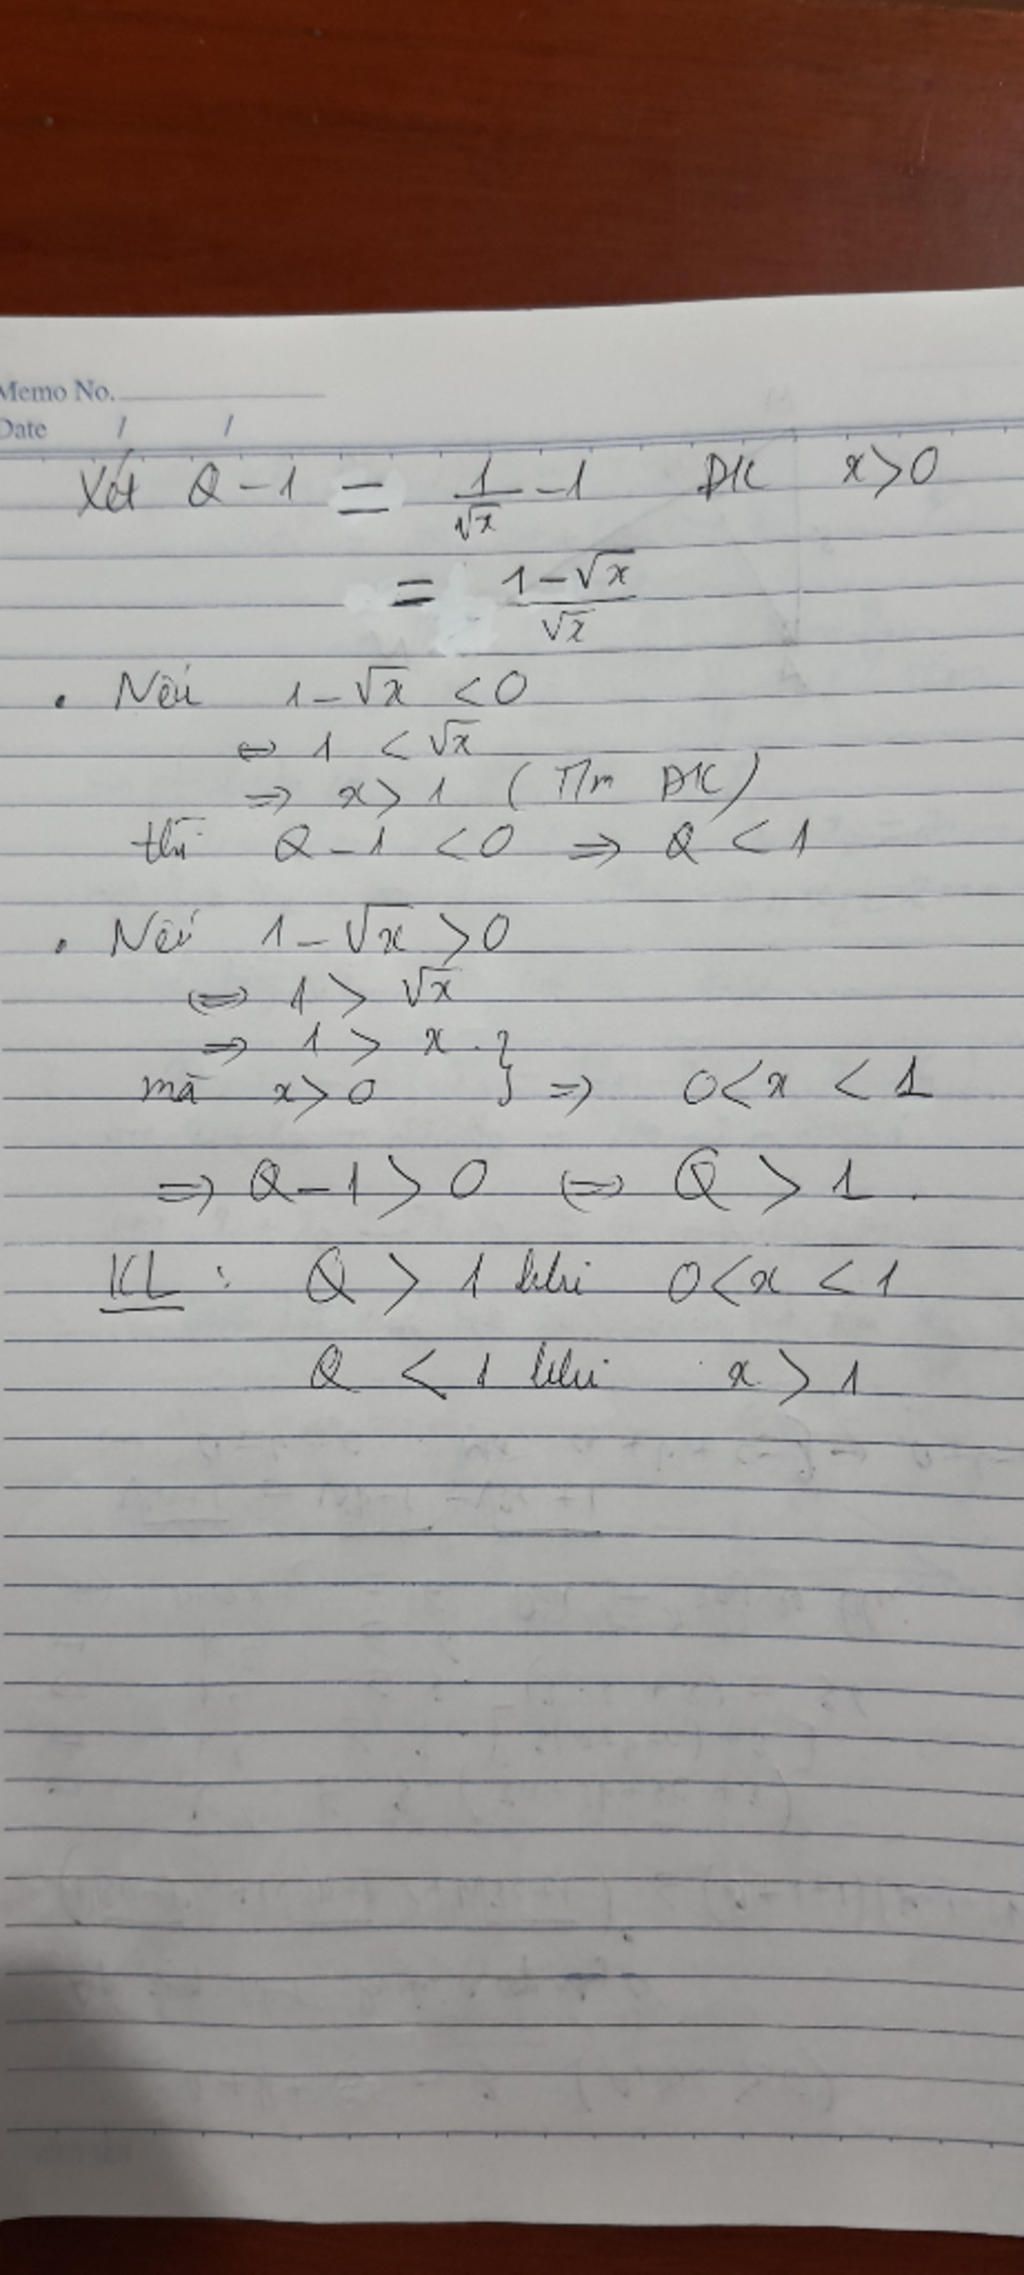 Memo No.
Date / /
Xét Q - 1 = 1/√x - 1 ĐK x > 0
= (1 - √x)/√x
. Nếu 1 - √x < 0
⇔ 1 < √x
⇒ x > 1 (T/m ĐK)
thì Q - 1 < 0 ⇒ Q < 1
. Nếu 1 - √x > 0
⇔ 1 > √x
⇒ 1 > x }
mà x > 0 } ⇒ 0 < x < 1
⇒ Q - 1 > 0 ⇔ Q > 1.
KL : Q > 1 khi 0 < x < 1
Q < 1 khi x > 1